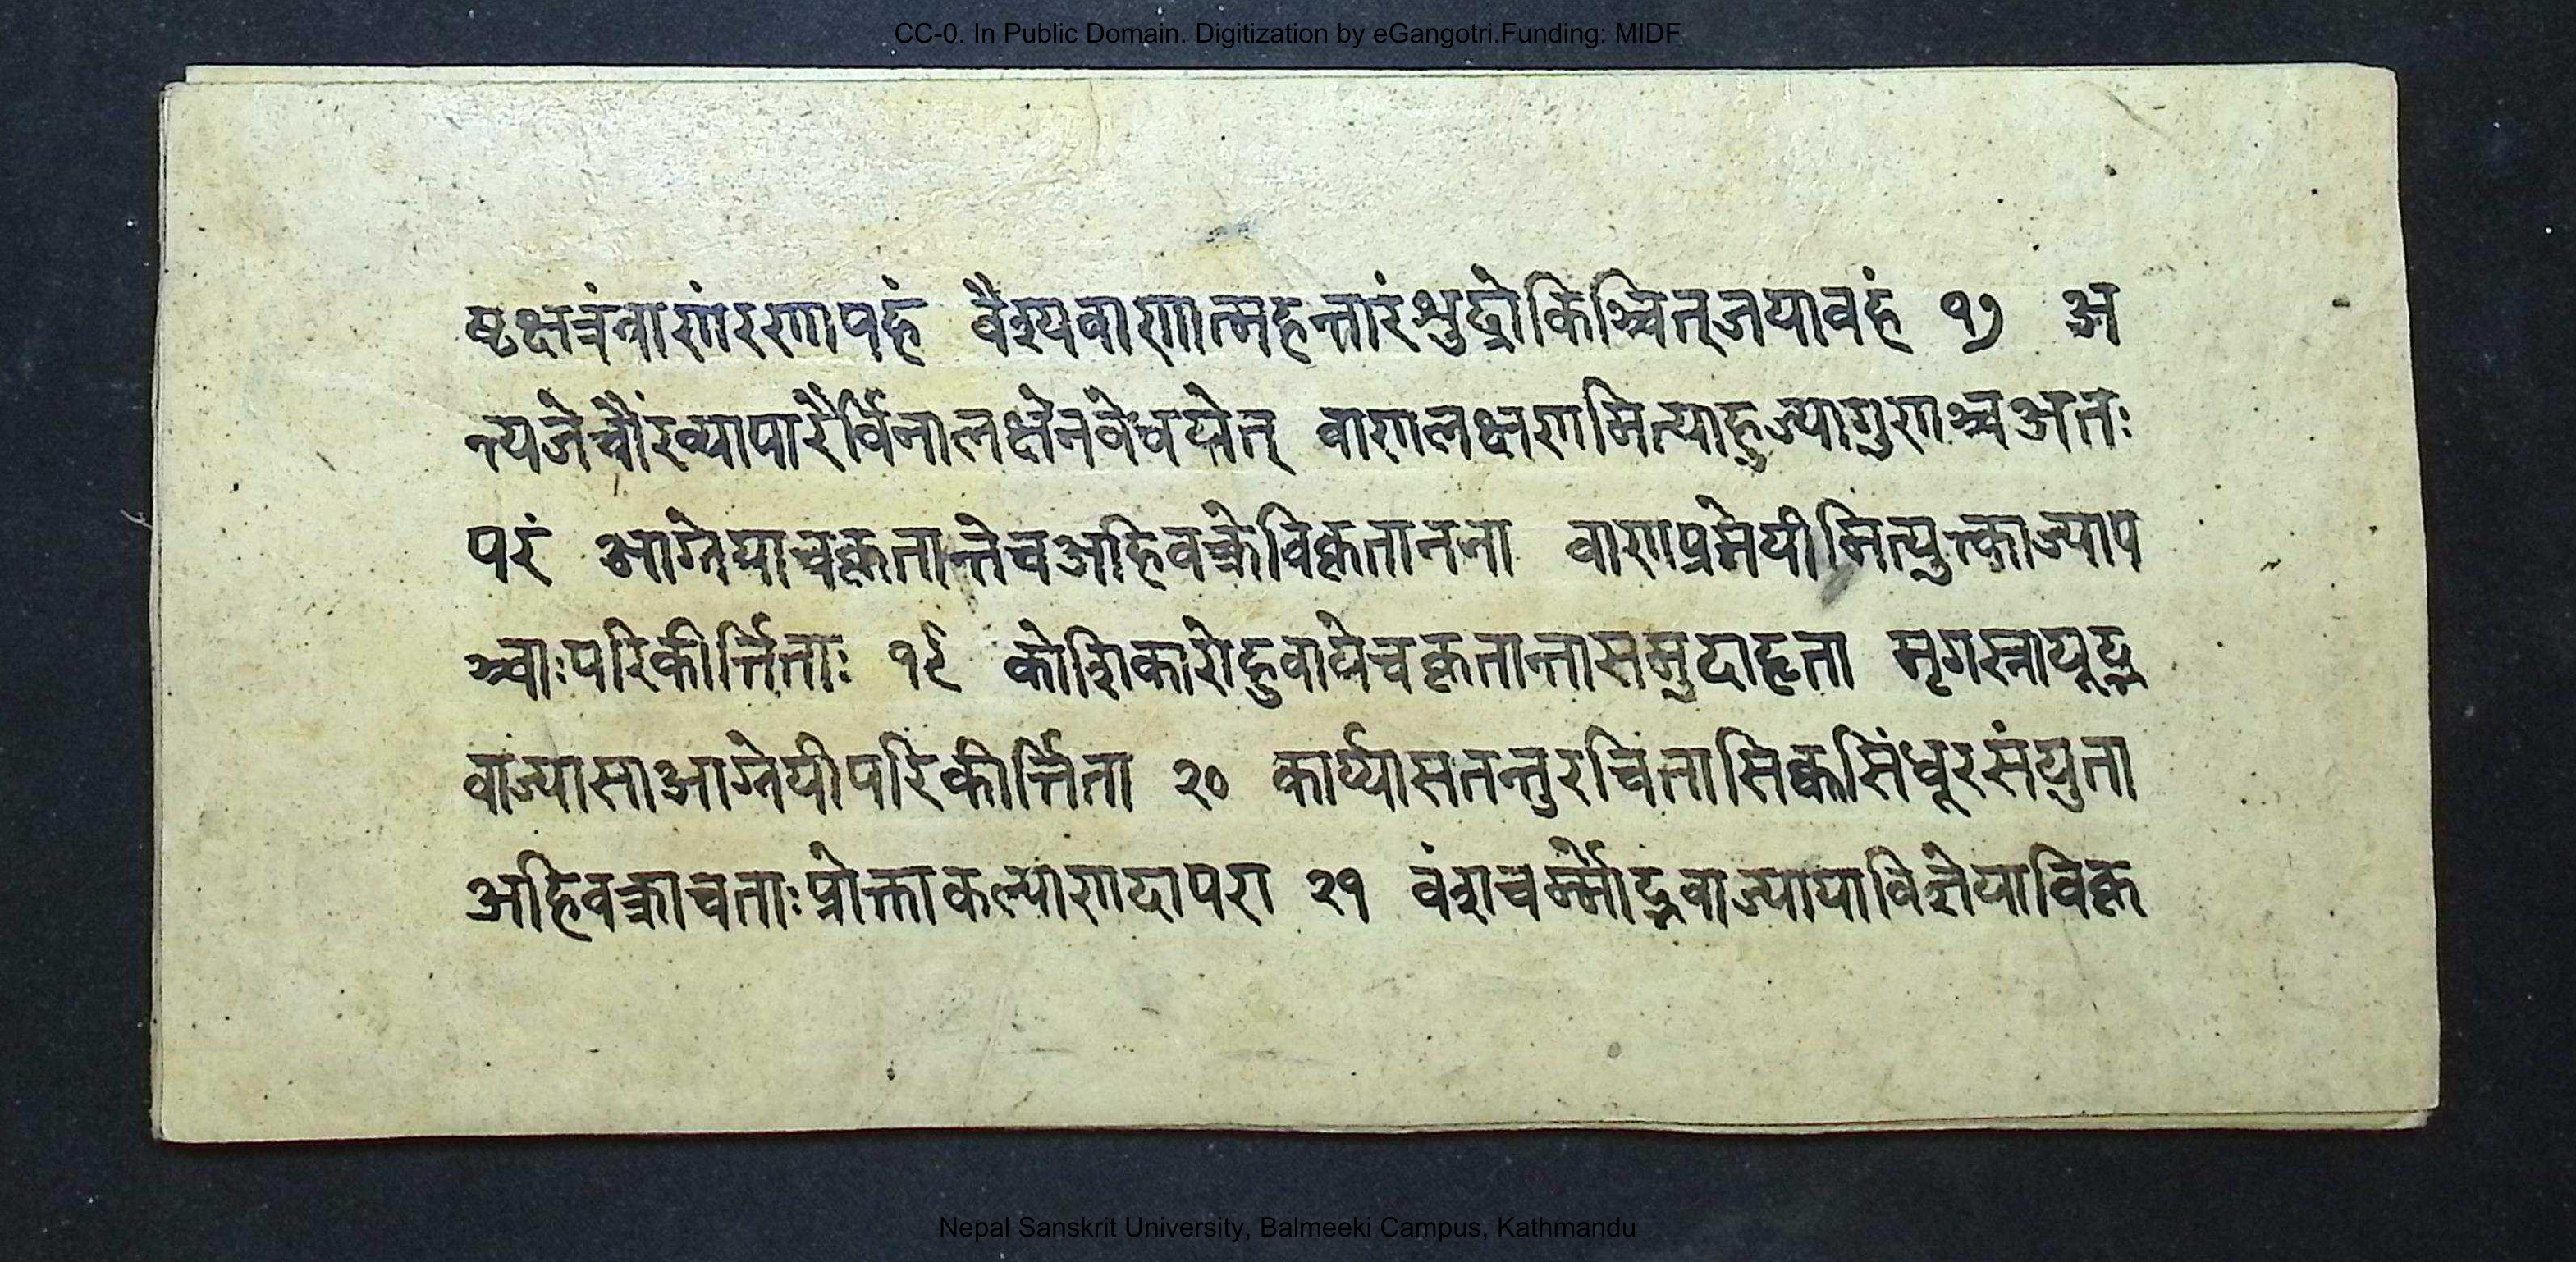 CC-0. In Public Domain. Digitization by eGangotri.Funding: MIDF
ष्टक्षत्रंवाणंरणापहं वैश्यवाणात्महन्तारंश्रुद्रोकिञ्चित्जयावहं १७ अ
न्त्यजेचौरव्यापारैर्विनालक्षेनवेधयेत् वाणलक्षणमित्याहुज्यागुणाश्चअतः
परं आग्नेयाचकृतान्तेचअहिवक्रेविकृतानना वाणप्रमेयीमित्युक्ताज्याप
ञ्चाःपरिकीर्त्तिताः १९ कोशिकारोद्दुवायेचकृतान्तासमुदाहृता मृगस्नायूद्भ
वाज्यासाआग्नेयीपरिकीर्त्तिता २० कार्प्यासतन्तुरचितासिक्तसिंधूरसंयुता
अहिवक्राचताःप्रोक्ताकल्याणदापरा २१ वंशचर्म्मोद्भवाज्यायाविज्ञेयाविकृ
Nepal Sanskrit University, Balmeeki Campus, Kathmandu